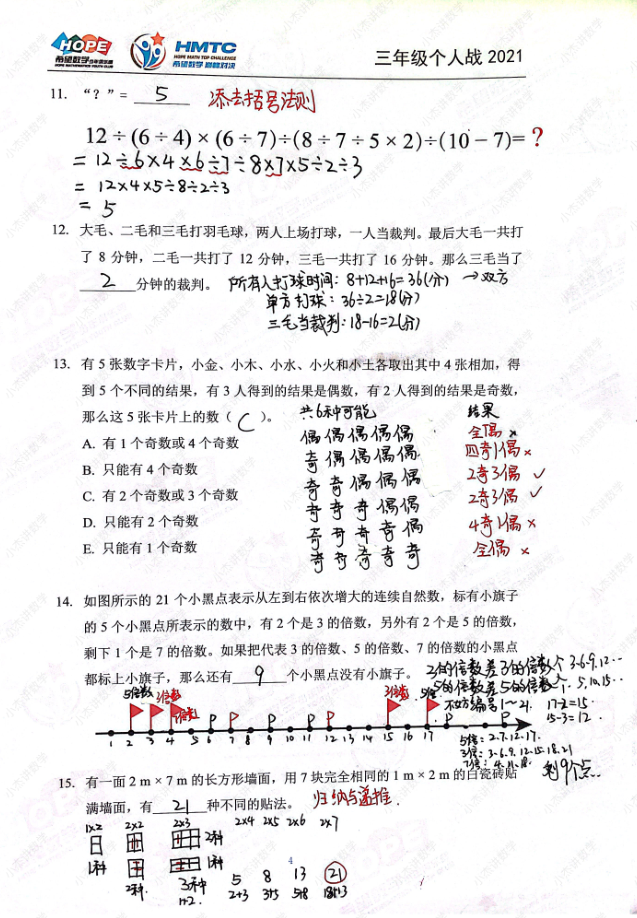 HOPE
希望数学
HMTC
HOPE MATH TOP CHALLENGE
希望数学 巅峰对决
三年级个人战 2021
11. “?” = 5 添去括号法则
12÷(6÷4)×(6÷7)÷(8÷7÷5×2)÷(10-7)=?
= 12÷6×4×6÷7÷8×7×5÷2÷3
= 12×4×5÷8÷2÷3
= 5
12. 大毛、二毛和三毛打羽毛球，两人上场打球，一人当裁判。最后大毛一共打
了 8 分钟，二毛一共打了 12 分钟，三毛一共打了 16 分钟。那么三毛当了
2 分钟的裁判。 所有人打球时间: 8+12+16=36(分) →双方
单方打球: 36÷2=18(分)
三毛当裁判: 18-16=2(分)
13. 有 5 张数字卡片，小金、小木、小水、小火和小土各取出其中 4 张相加，得
到 5 个不同的结果，有 3 人得到的结果是偶数，有 2 人得到的结果是奇数，
那么这 5 张卡片上的数（ C ）。 共6种可能 结果
偶偶偶偶偶 全偶 ×
A. 有 1 个奇数或 4 个奇数 奇偶偶偶偶 四奇1偶 ×
B. 只能有 4 个奇数 奇奇偶偶偶 2奇3偶 ✓
C. 有 2 个奇数或 3 个奇数 奇奇奇偶偶 2奇3偶 ✓
D. 只能有 2 个奇数 奇奇奇奇偶 4奇1偶 ×
E. 只能有 1 个奇数 奇奇奇奇奇 全偶 ×
14. 如图所示的 21 个小黑点表示从左到右依次增大的连续自然数，标有小旗子
的 5 个小黑点所表示的数中，有 2 个是 3 的倍数，另外有 2 个是 5 的倍数，
剩下 1 个是 7 的倍数。如果把代表 3 的倍数、5 的倍数、7 的倍数的小黑点
都标上小旗子，那么还有 9 个小黑点没有小旗子。 3的倍数差3的倍数个 3.6.9.12…
5的倍数差5的倍数个. 5.10.15…
5倍数 3倍数 7倍数 3倍数 5倍 不妨编号1~21. 17-2=15.
15-3=12.
1 2 3 4 5 6 7 8 9 10 11 12 13 14 15 16 17
5倍: 2.7.12.17.
3倍: 3.6.9.12.15.18.21
7倍: 4.11.18. 剩9个点.
15. 有一面 2 m × 7 m 的长方形墙面，用 7 块完全相同的 1 m × 2 m 的白瓷砖贴
满墙面，有 21 种不同的贴法。 归纳与递推.
1×2 2×2 2×3 2×4 2×5 2×6 2×7
2种
1种 1种
2种. 3种 5 8 13 21
1+2. 2+3 3+5 5+8 8+13
4